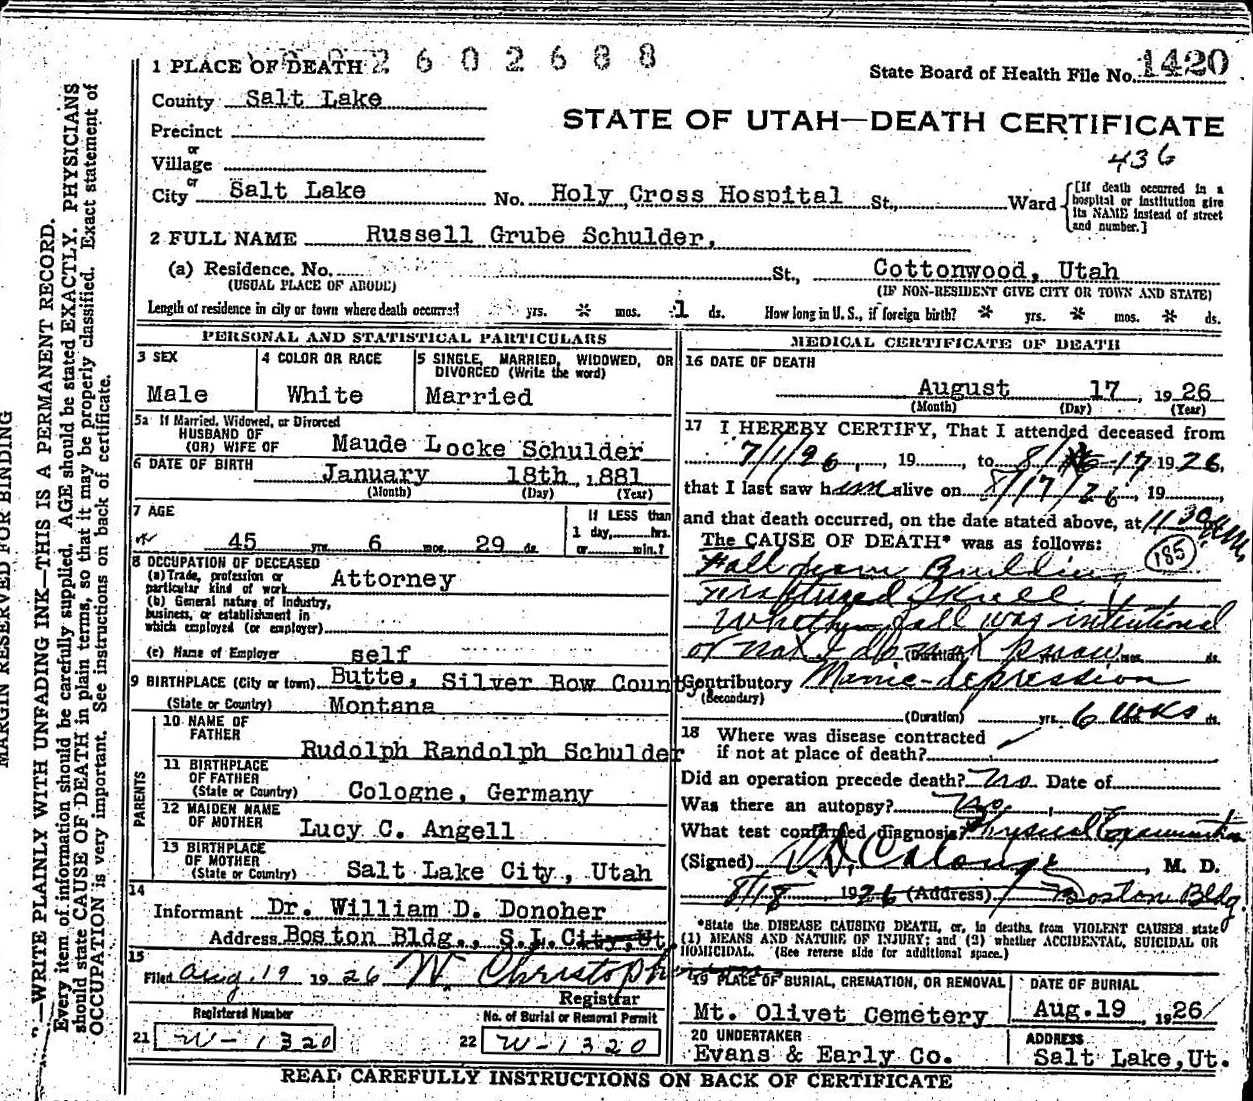 2602688
1 PLACE OF DEATH
State Board of Health File No. 1420
County Salt Lake
STATE OF UTAH—DEATH CERTIFICATE
Precinct
436
or
Village
or
City Salt Lake No. Holy Cross Hospital St., Ward
[If death occurred in a hospital or institution give its NAME instead of street and number.]
2 FULL NAME Russell Grube Schulder,
(a) Residence. No. St., Cottonwood, Utah
(USUAL PLACE OF ABODE) (IF NON-RESIDENT GIVE CITY OR TOWN AND STATE)
Length of residence in city or town where death occurred yrs. * mos. 1 ds. How long in U. S., if foreign birth? * yrs. * mos. * ds.
PERSONAL AND STATISTICAL PARTICULARS
3 SEX
Male
4 COLOR OR RACE
White
5 SINGLE, MARRIED, WIDOWED, OR
DIVORCED (Write the word)
Married
5a If Married, Widowed, or Divorced
HUSBAND OF
(OR) WIFE OF Maude Locke Schulder
6 DATE OF BIRTH January 18th, 1881
(Month) (Day) (Year)
7 AGE
45 yrs. 6 mos. 29 ds.
If LESS than
1 day, hrs.
or min.?
8 OCCUPATION OF DECEASED
(a) Trade, profession or
particular kind of work Attorney
(b) General nature of Industry,
business, or establishment in
which employed (or employer)
(c) Name of Employer self
9 BIRTHPLACE (City or town) Butte, Silver Bow County
(State or Country) Montana
PARENTS
10 NAME OF
FATHER
Rudolph Randolph Schulder
11 BIRTHPLACE
OF FATHER
(State or Country) Cologne, Germany
12 MAIDEN NAME
OF MOTHER Lucy C. Angell
13 BIRTHPLACE
OF MOTHER
(State or Country) Salt Lake City, Utah
14
Informant Dr. William D. Donoher
Address Boston Bldg., S.L.City, Ut.
15
Filed Aug. 19 1926 W. Christopherson
Registrar
Registered Number
21 W-1320
No. of Burial or Removal Permit
22 W-1320
MEDICAL CERTIFICATE OF DEATH
16 DATE OF DEATH
August 17, 1926
(Month) (Day) (Year)
17 I HEREBY CERTIFY, That I attended deceased from
7/1/26, 19, to 8/17 1926,
that I last saw him alive on 8/17/26, 19,
and that death occurred, on the date stated above, at 11 30 A.M.
The CAUSE OF DEATH* was as follows:
185
Fall from Building
Fractured Skull
Whether fall was intentional
or not I do not know (Duration) mos. ds.
Contributory Manic-depression
(Secondary)
(Duration) yrs. 6 wks ds.
18 Where was disease contracted
if not at place of death?
Did an operation precede death? No. Date of
Was there an autopsy? No.
What test confirmed diagnosis? Physical Examination
(Signed) M. D.
8/18 1926 (Address) Boston Bldg.
*State the DISEASE CAUSING DEATH, or, in deaths from VIOLENT CAUSES state
(1) MEANS AND NATURE OF INJURY; and (2) whether ACCIDENTAL, SUICIDAL OR
HOMICIDAL. (See reverse side for additional space.)
19 PLACE OF BURIAL, CREMATION, OR REMOVAL
Mt. Olivet Cemetery
DATE OF BURIAL
Aug.19, 1926
20 UNDERTAKER
Evans & Early Co.
ADDRESS
Salt Lake,Ut.
READ CAREFULLY INSTRUCTIONS ON BACK OF CERTIFICATE
MARGIN RESERVED FOR BINDING
"—WRITE PLAINLY WITH UNFADING INK—THIS IS A PERMANENT RECORD.
Every item of information should be carefully supplied. AGE should be stated EXACTLY. PHYSICIANS
should state CAUSE OF DEATH in plain terms, so that it may be properly classified. Exact statement of
OCCUPATION is very important. See instructions on back of certificate.